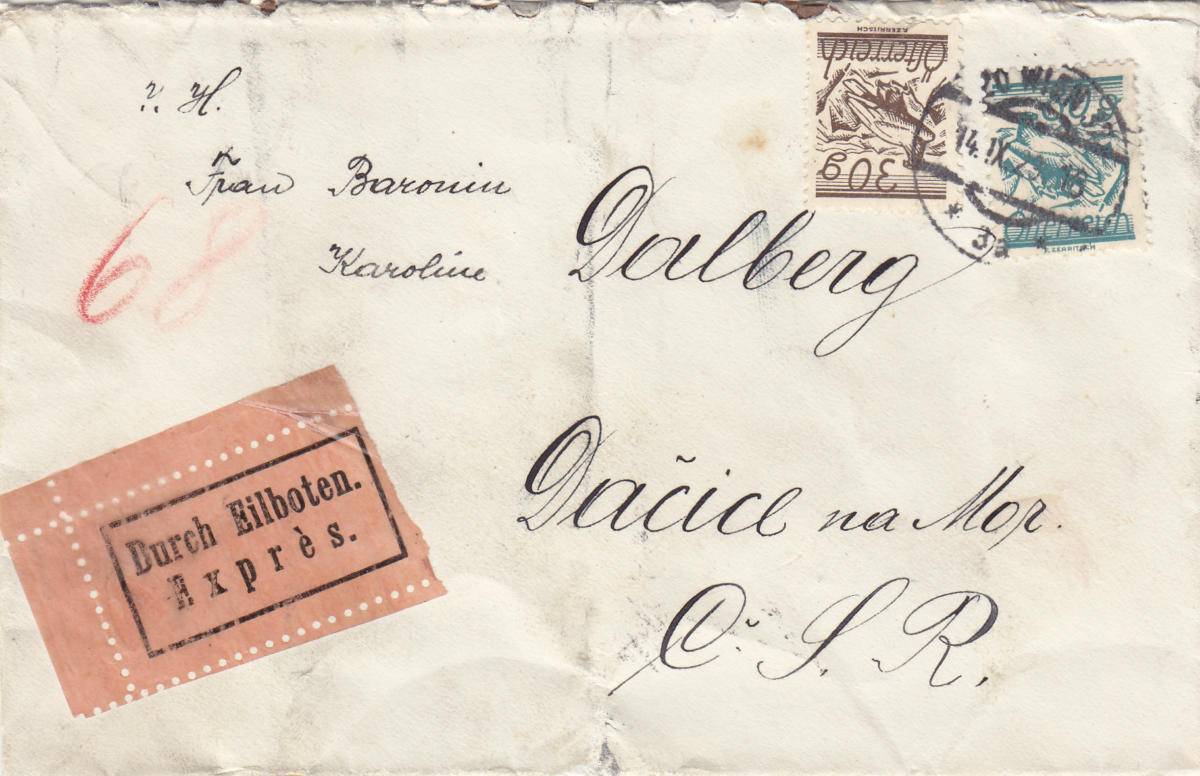 A.ZERRITSCH
Österreich
30g
WIEN
14.IX
16
Österreich
A.ZERRITSCH
H.
Frau Baronin
Karoline Dalberg
68
Durch Eilboten.
Exprès.
Dačice na Mor.
Č. S. R.